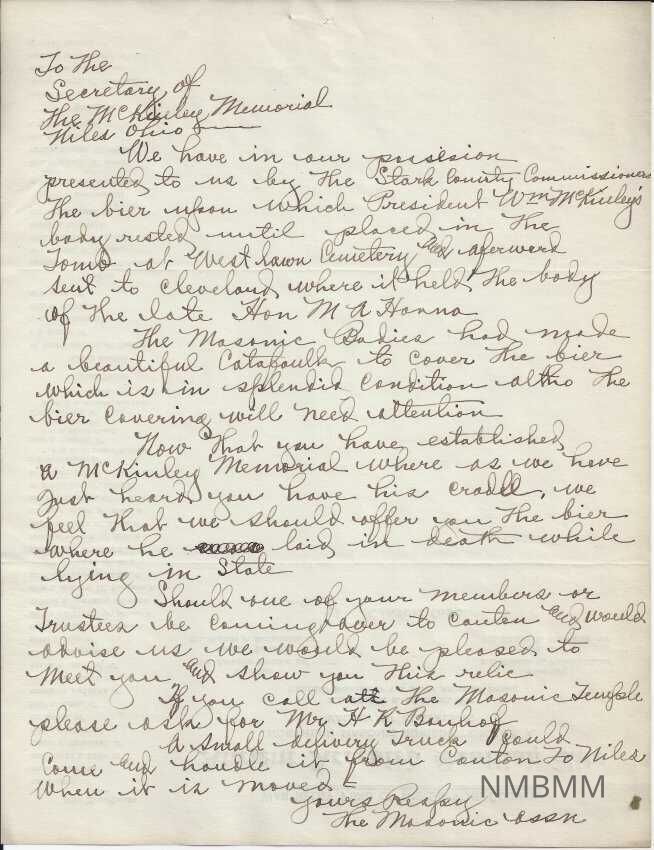 To The
Secretary of
The McKinley Memorial
Niles Ohio
We have in our possesion
presented to us by The Stark County Commissioners
The bier upon which President Wm McKinley's
body rested until placed in The
Tomb at West Lawn Cemetery and aferward
sent to Cleveland where it held The body
of The late Hon M A Hanna
The Masonic Bodies had made
a beautiful Catafaulk to cover The bier
which is in splendid condition altho The
bier covering will need attention
Now That you have established
a McKinley Memorial where as we have
Just heard you have his cradll, we
feel that we should offer you The bier
where he laid in death while
lying in State
Should one of your members or
Trustees be coming over to Canton and would
advise us we would be pleased to
meet you and show you This relic
If you call att The Masonic Temple
please ask for Mr H K Bonhof
A small delivery Truck could
Come and handle it from Canton To Niles
When it is moved
Yours Respy
The Masonic Assn
NMBMM